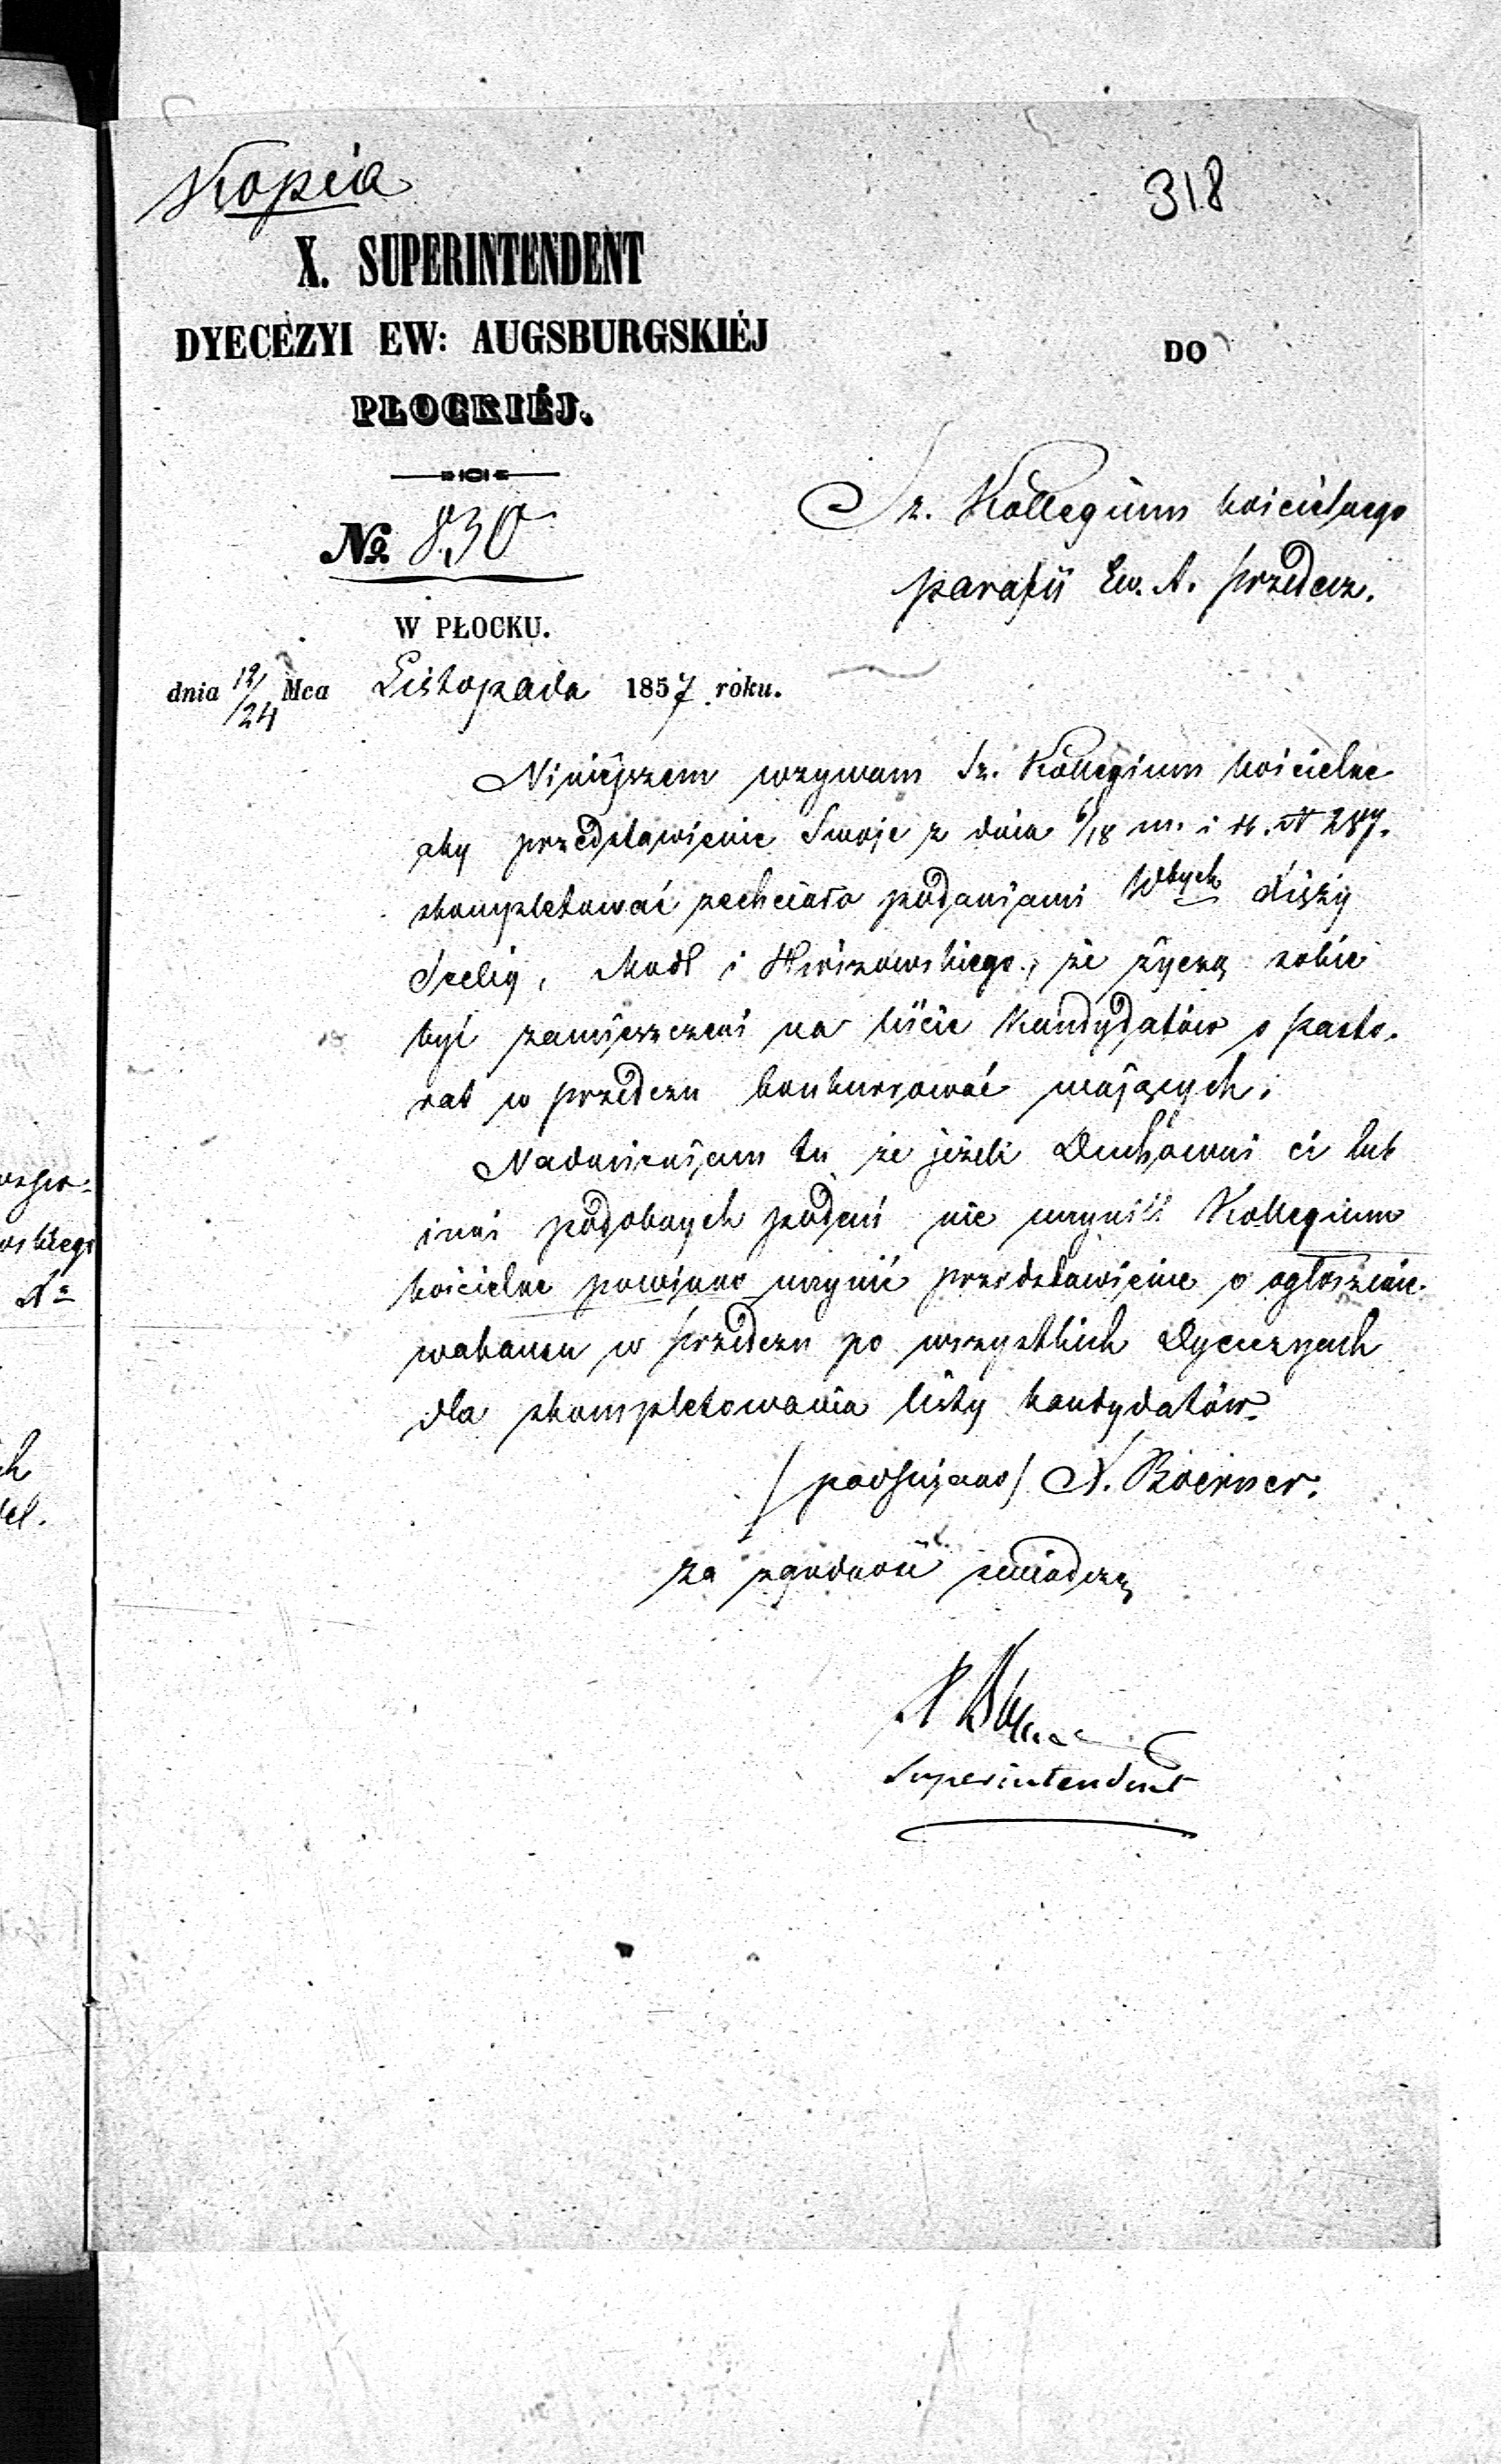 Kopia
318
X. SUPERINTENDENT
DYECEZYI EW: AUGSBURGSKIÉJ
PŁOCKIÉJ.
DO
No 830
Sz. Kollegium kościelnego
parafii Ew. A. Przedecz.
W PŁOCKU.
dnia 12/24 Mca Listopada 1857 roku.
Niniejszem wzywam Sz. Kollegium kościelne
aby przedstawienie Swoje z dnia 6/18 m. i r. N 287.
skompletować zechciało podaniami Wbych Xięży
Modl i że życzą sobie
być zamieszczeni na liście kandydatów o Pasto-
rat w Przedczu konkurować mających.
Nadmieniam tu że jeżeli Duchowni ci lub
inni podobnych podań nie Kollegium
kościelne powinno przedstawienie o ogłoszenie
wakansu w Przedczu po wszystkich Dyecezyach
dla skompletowania listy kandydatów.
/podpisano/ N. Boerner.
za zgodność świadczę
Superintendent
wskiego
Nr
ch